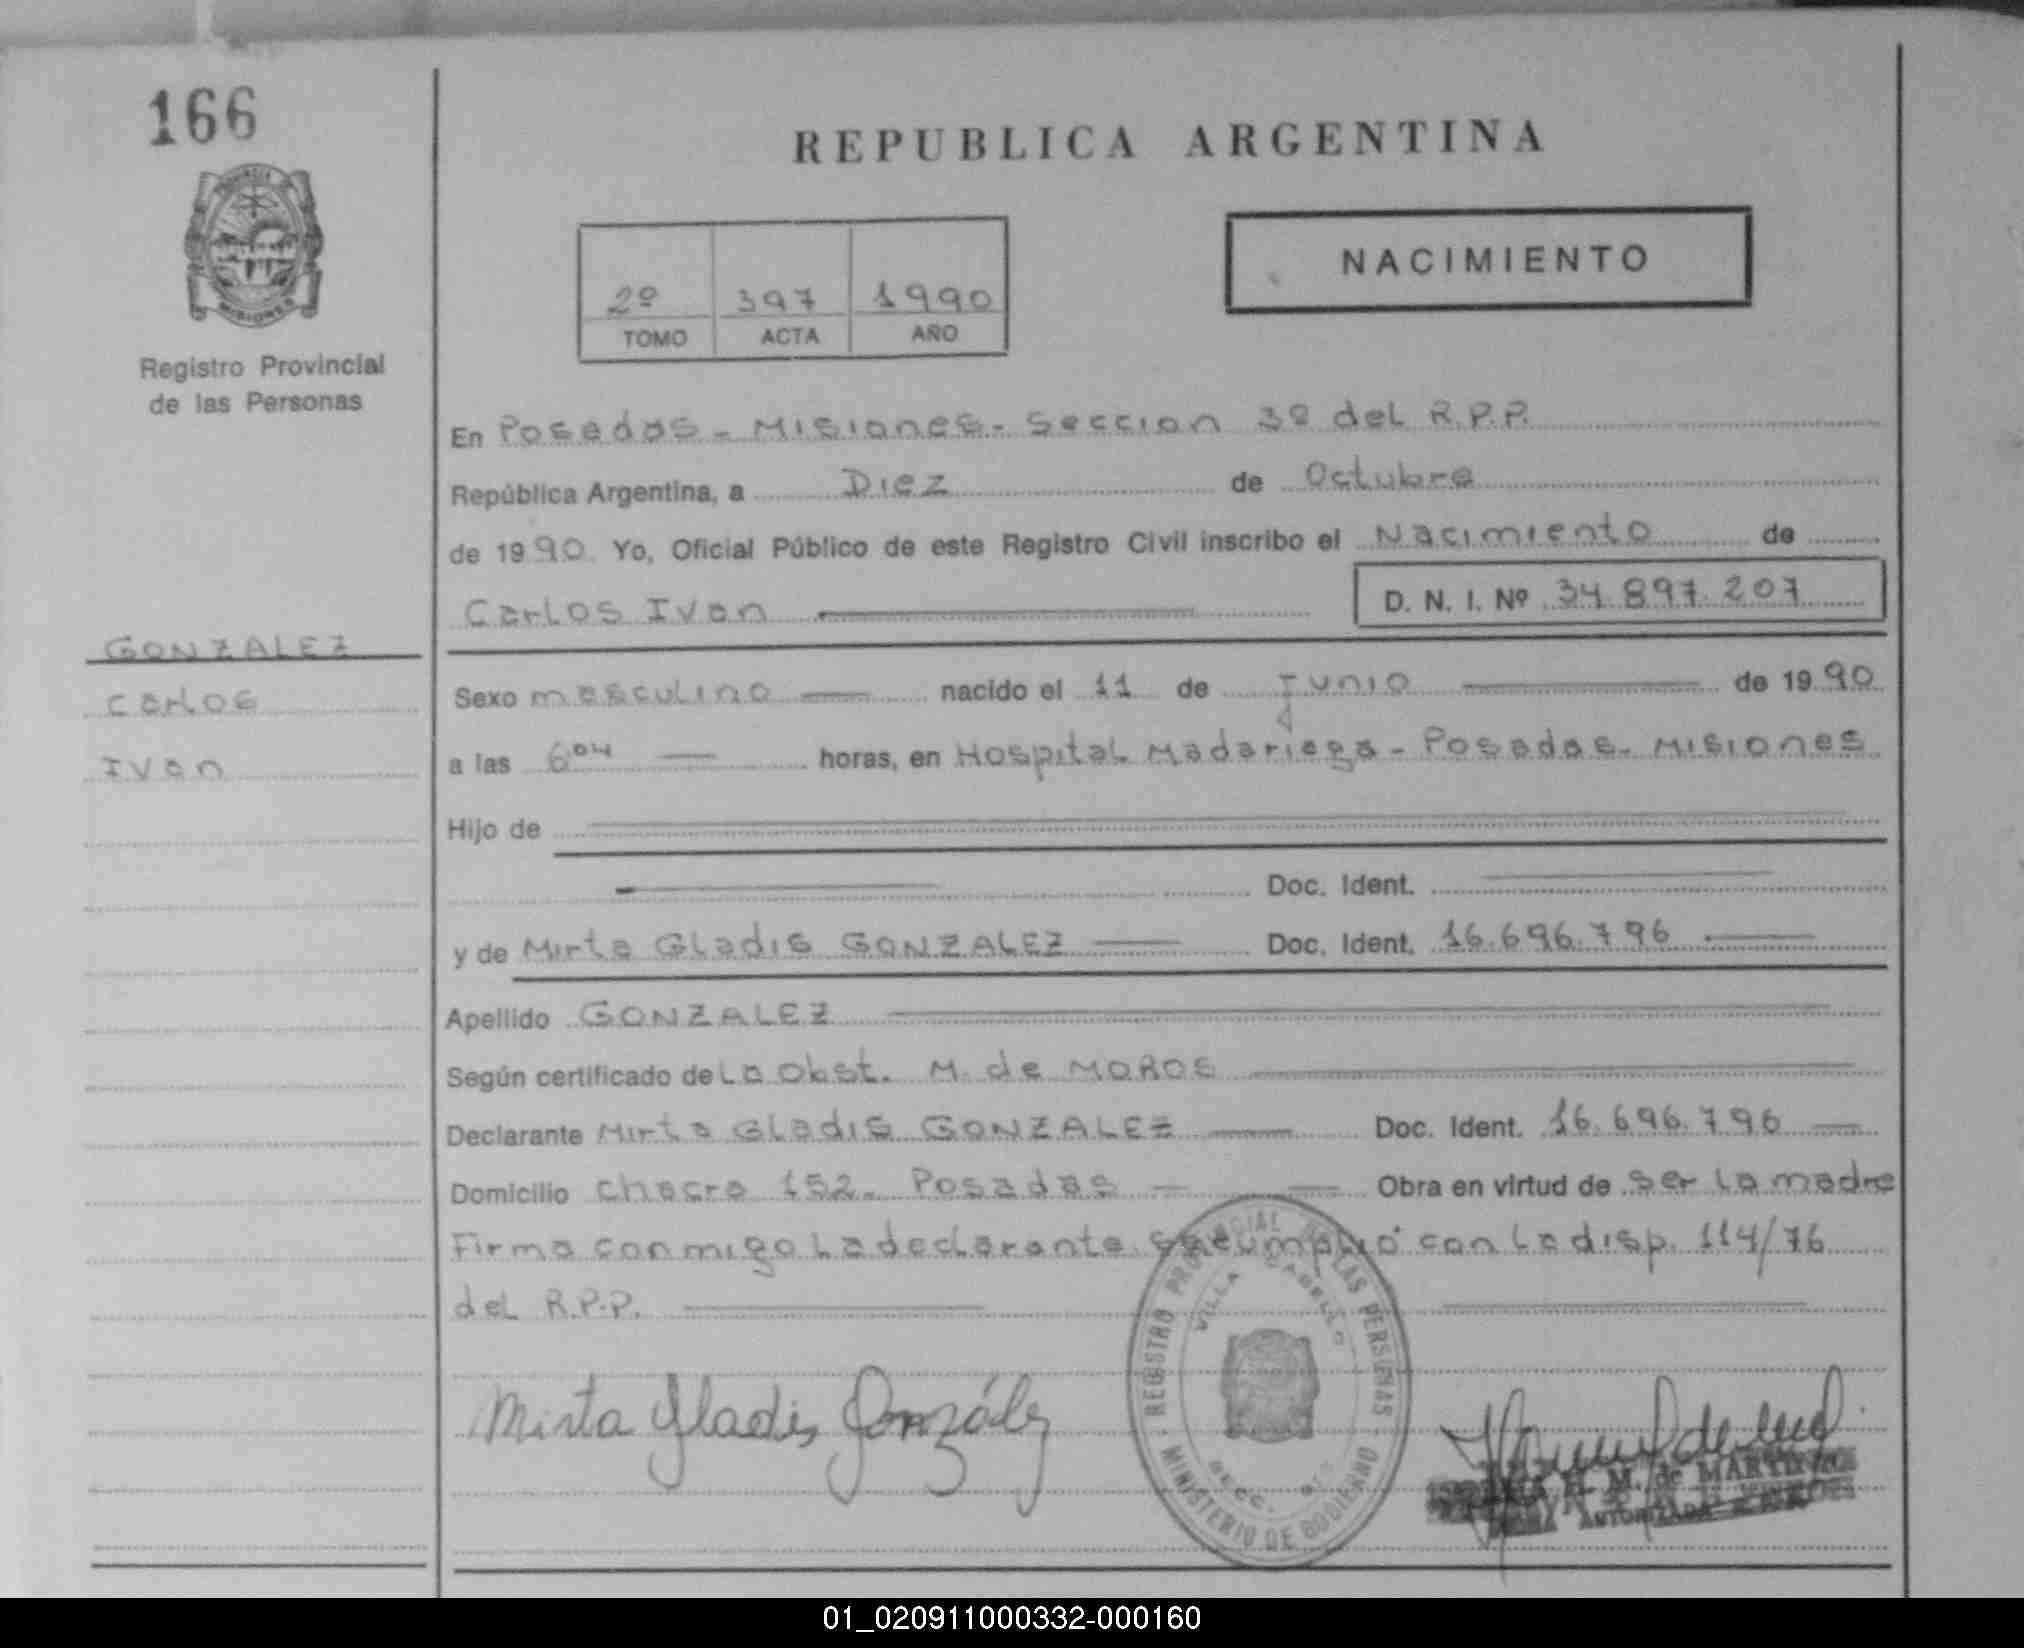 166
REPUBLICA ARGENTINA
PROVINCIA DE
MISIONES
Registro Provincial
de las Personas
2º 397 1990
TOMO ACTA AÑO
NACIMIENTO
En Posadas - Misiones - Seccion 3º del R.P.P.
República Argentina, a Diez de Octubre
de 1990. Yo, Oficial Público de este Registro Civil inscribo el Nacimiento de
Carlos Ivan D. N. I. Nº 34.897.207
GONZALEZ
Carlos
Ivan
Sexo masculino nacido el 11 de Junio de 1990
a las 6 04 horas, en Hospital Madariaga - Posadas - Misiones
Hijo de
Doc. Ident.
y de Mirta Gladis GONZALEZ Doc. Ident. 16.696.796
Apellido GONZALEZ
Según certificado de La Obst. M. de MOROS
Declarante Mirta Gladis GONZALEZ Doc. Ident. 16.696.796
Domicilio chacra 152. Posadas Obra en virtud de ser la madre
Firma conmigo la declarante. se cumplió con la disp. 114/76
del R.P.P.
Mirta Gladis González
REGISTRO PROVINCIAL DE LAS PERSONAS
VILLA CABELLO
SECC.
MINISTERIO DE GOBIERNO
H. M. de MARTINEZ
AUTORIZADA
01_020911000332-000160